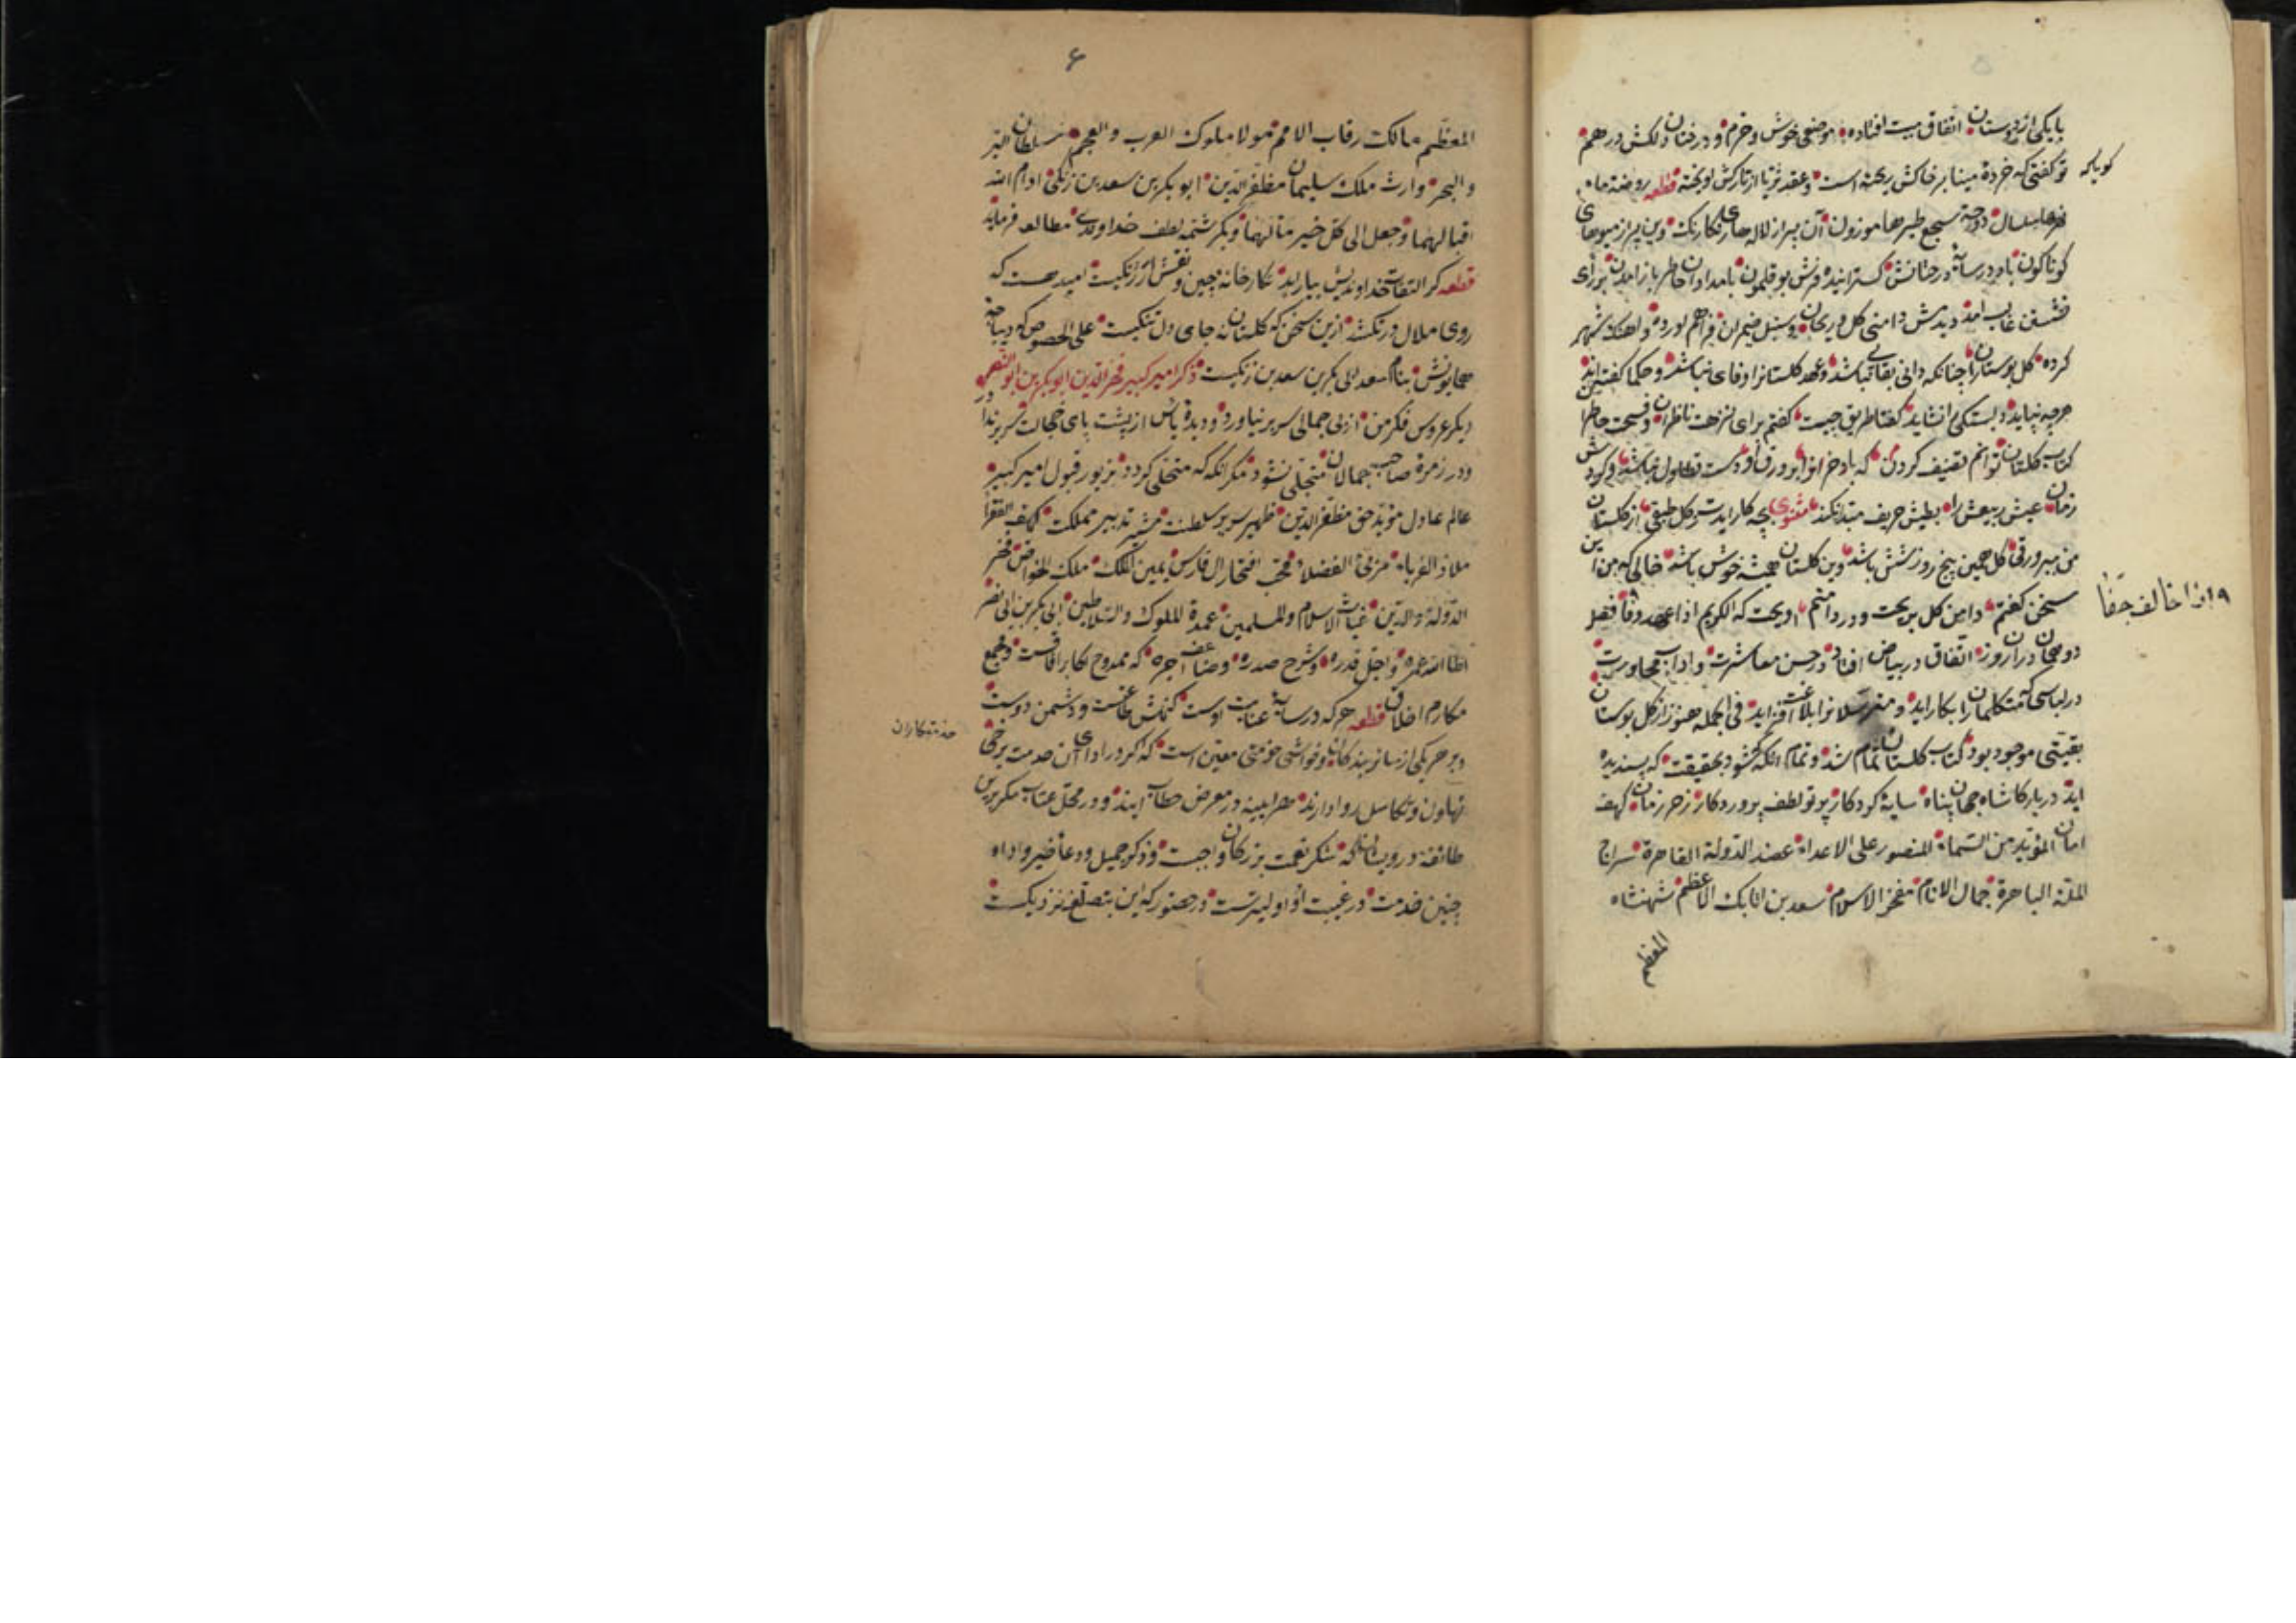 با یکی از دوستان اتفاق مبیت افتاده موضعی خوش و خرم و درختان دلکش درهم
تو کفتی که خردۀ مینا بر خاکش ریخته است و عقد ثریا از تارکش اویخته قطعه روضة ماء
نهرها سلسال دوحة سجع طیرها موزون آن پر از لاله‌های رنکارنک وین پر از میوهای
کوناکون باد در سایۀ درختانش کسترانیده فرش بوقلمون بامدادان خاطر باز امدن برای
نشستن غالب امد دیدمش دامنی کل و ریحان و سنبل و ضیمران فراهم اورده و اهنک شهر
کرده کل بوستانرا چنانکه دانی بقایی نباشد و عهد کلستانرا وفای نباشد و حکما کفته‌اند
هرچه نپاید دلبستکی را نشاید کفتا طریق چیست کفتم برای نزهت ناظران و فسحت حاضران
کتاب کلستان توانم تصنیف کردن که باد خزانرا بر ورق او دست تطاول نباشد و کردش
زمان عیش ربیعش را بطیش خریف مبدل نکند مثنوی بچه کار ایدت ز کل طبقی از کلستان
من ببر ورقی کل همین پنج روز شش باشد وین کلستان همیشه خوش باشد حالی که من این
سخن کفتم دامن کل بریخت و در دامنم اویخت که الکریم اذا وعد وفا فصل
دو همان در ان روز اتفاق در بیاض افتاد در حسن معاشرت و اداب محاورت
در لباسی که متکلمانرا بکار اید و مترسلانرا بلاغت افزاید فی الجمله هنوز از کل بوستان
بقیتی موجود بود کتاب کلستان تمام شد و تمام انکه شود بحقیقت که پسندیده
اید در بارکاه شاه جهان پناه سایۀ کردکار پرتو لطف پروردکار ذخر زمان کهف
امان المؤید من السماء المنصور علی الاعداء عضد الدولة القاهرة سراج
الملة الباهرة جمال الانام مفخر الاسلام سعد بن اتابک الاعظم شهنشاه
المعظم
کویا که
اذا خالف جفا
٦
المعظم مالک رقاب الامم مولا ملوک العرب و العجم سلطان البر
و البحر وارث ملک سلیمان مظفر الدین ابوبکر بن سعد بن زنکی ادام الله
اقبالهما و جعل الی کل خیر مآلهما و بکرشمه لطف خداوندی مطالعه فرماید
قطعه کر التفات خداوندیش بیاراید نکارخانه چین و نقش ارژنکیست امید هست که
روی ملال درنکشد ازین سخن که کلستان نه جای دل تنکیست علی الخصوص که دیباچه
همایونش بنام سعد ابی بکر بن سعد بن زنکیست ذکر امیر کبیر فخر الدین ابوبکر بن ابو النصر
دیکر عروس فکر من از بی جمالی سر برنیاورد و دیدۀ یاس از پشت پای خجالت برندارد
و در زمرۀ صاحب جمالان متجلی نشود مکر انکه که متحلی کردد بزیور قبول امیر کبیر
عالم عادل مؤید حق مظفر الدین ظهیر سریر سلطنت مشیر تدبیر مملکت کهف الفقرا
ملاذ الغرباء مربی الفضلا محب افتخار آل فارس یمین الملک ملک الخواص فخر
الدولة والدین غیاث الاسلام والمسلمین عمدة الملوک والسلاطین ابی بکر بن ابی نصر
اطال الله عمره و اجل قدره و شرح صدره و ضاعف اجره که ممدوح اکابر آفاقست و مجمع
مکارم اخلاق قطعه هر که در سایۀ عنایت اوست کنهش طاعتست و دشمن دوست
و بر هر یکی از سایر بندکان و حواشی خدمتی معین است که اکر در ادای آن خدمت برخی
تهاون و تکاسل روا دارند هر آیینه در معرض خطاب ایند و در محل عتاب مکر برین
طائفۀ درویشان که شکر نعمت بزرکان واجبست و ذکر جمیل و دعا خیر و اداء
چنین خدمت در غیبت اولیترست در حضور که این بتصنع نزدیکست
خدمتکاران